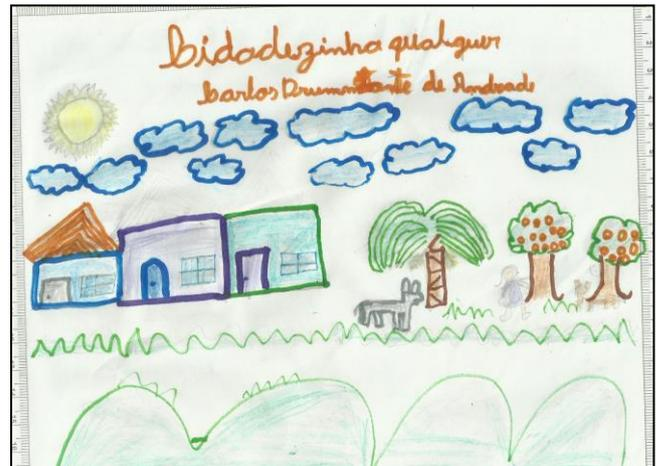 Cidadezinha qualquer
Carlos Drummond de Andrade